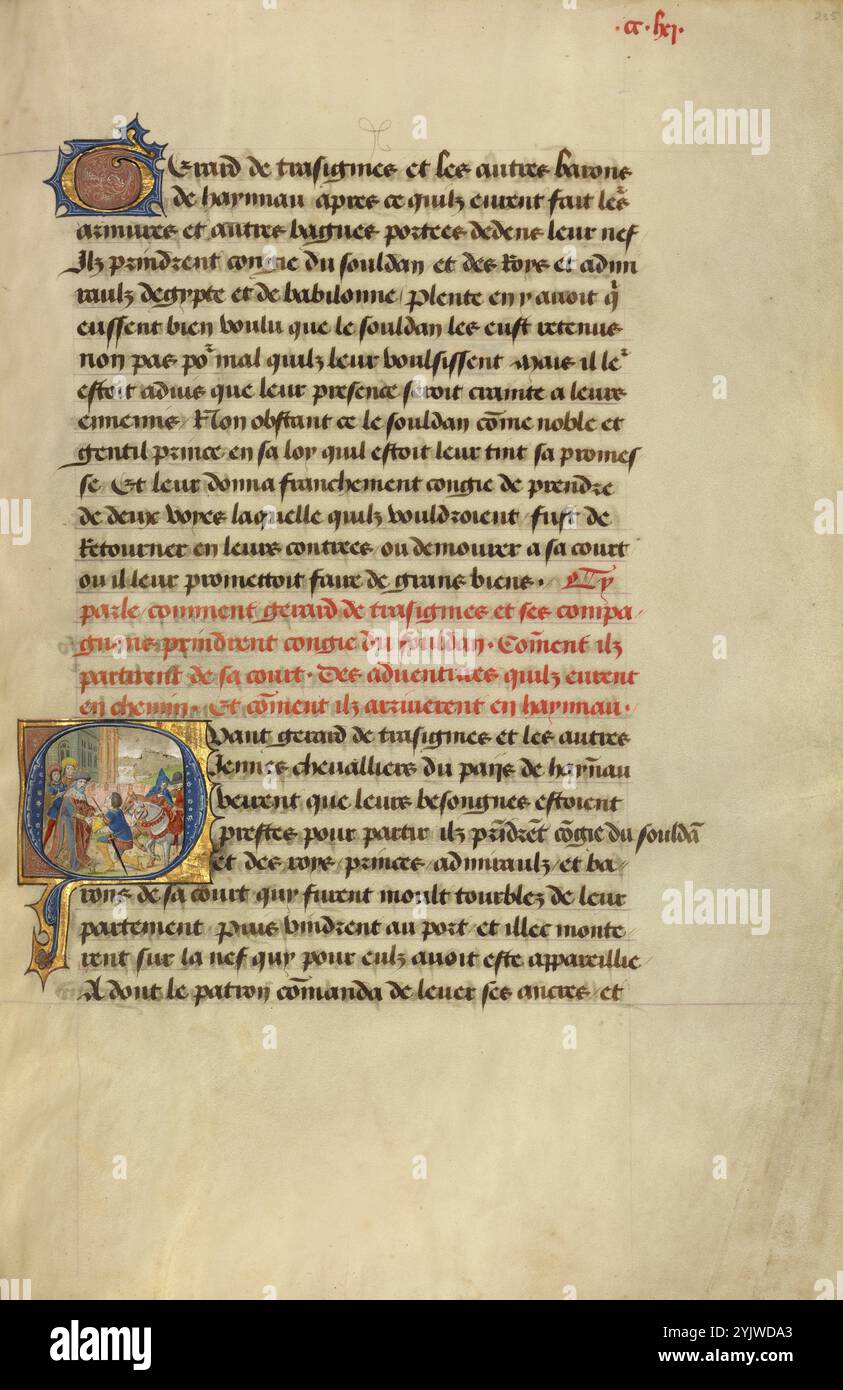 ·cc·lxj·
225
Gerard de trasignies et les autres barons
de haynnau apres ce quilz eurent fait le's
armures et autres bagues portees dedens leur nef
Ilz prindrent congie du souldan et des Roys et admi
raulz degypte et de babilonne / Plente en y auoit q'
eussent bien voulu que le souldan les eust retenus
non pas po' mal quilz leur voulsissent Mais il le'
estoit aduis que leur presence seroit crainte a leurs
ennemis / Non obstant ce le souldan cōme noble et
gentil prince en sa loy quil estoit leur tint sa promes
se / Et leur donna franchement congie de prendre
de deux voyes laquelle quilz vouldroient / fust de
Retourner en leurs contrees ou demourer a sa court
ou il leur promettoit faire de grans biens · Cy
parle comment gerard de trasignies et ses compa/
gnons prindrent congie du souldan · Cōment ilz
partirent de sa court · Des aduentures quilz eurent
en chemin · Et cōment ilz arriuerent en haynnau ·
Quant gerard de trasignies et les autres
Iennes cheualliers du pays de haynau
veirent que leurs besongnes estoient
prestes pour partir ilz prīdrēt cōgie du souldā
et des roys / princes / admiraulz / et ba/
rons de sa court quy furent moult tourblez de leur
partement / Puis vindrent au port / et illec monte/
rent sur la nef quy pour eulz auoit este appareillie
A dont le patron cōmanda de leuer ses ancres / et
alamy
Image ID: 2YJWDA3
www.alamy.com